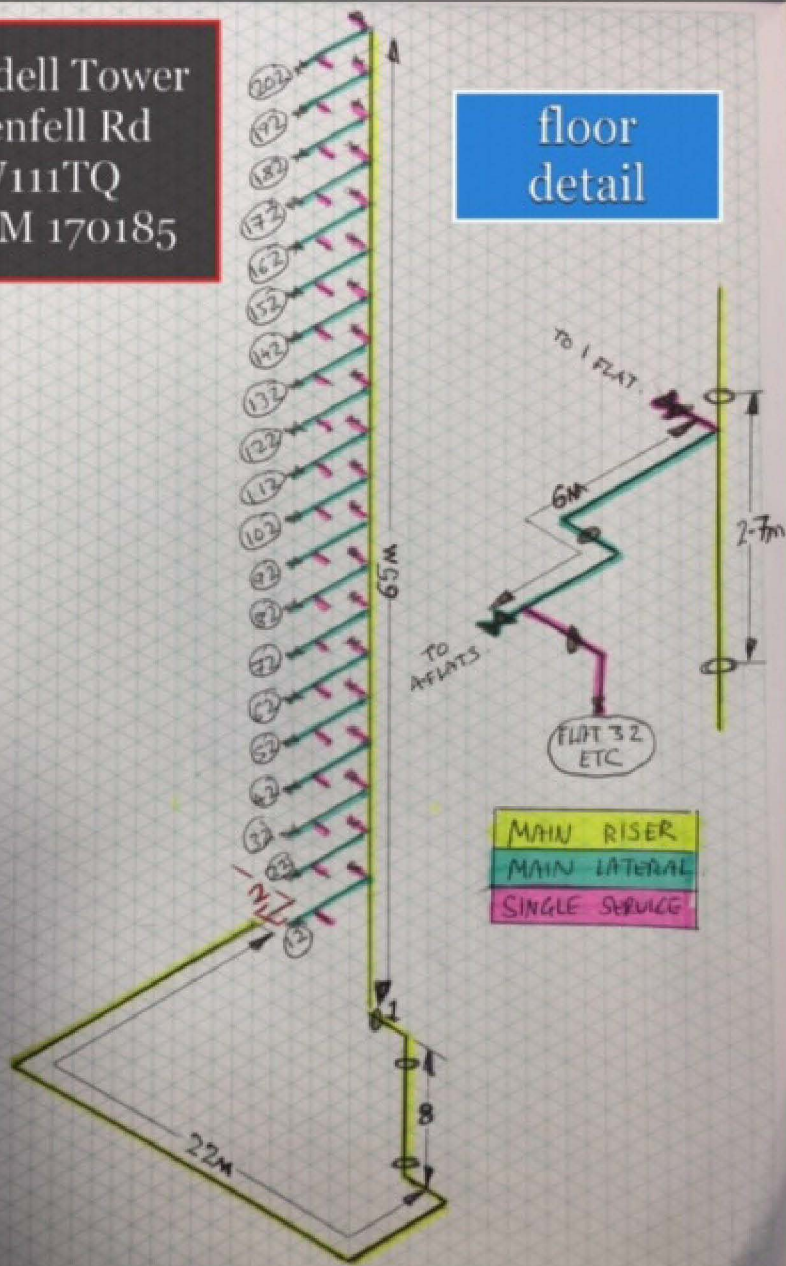 dell Tower
enfell Rd
111TQ
M 170185
floor
detail
202
192
182
172
162
152
142
132
122
112
102
92
82
72
62
52
42
32
22
12
65M
1
8
22M
TO 1 FLAT.
6M
2-7m
TO
FLATS
FLAT 32
ETC
MAIN RISER
MAIN LATERAL
SINGLE SERVICE